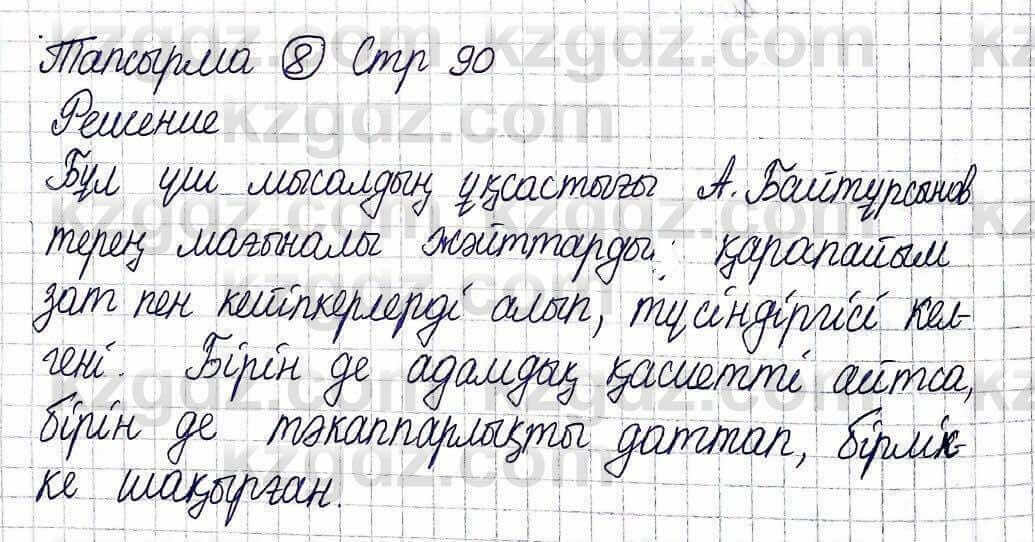 Тапсырма 8 Стр 90
Решение
Бұл үш мысалдың ұқсастығы А. Байтұрсынов
терең мағыналы жәйттарды: қарапайым
зат пен кейіпкерлерді алып, түсіндіргісі кел-
гені. Бірін де адамдық қасиетті айтса,
бірін де тәкаппарлықты даттап, бірлік-
ке шақырған.